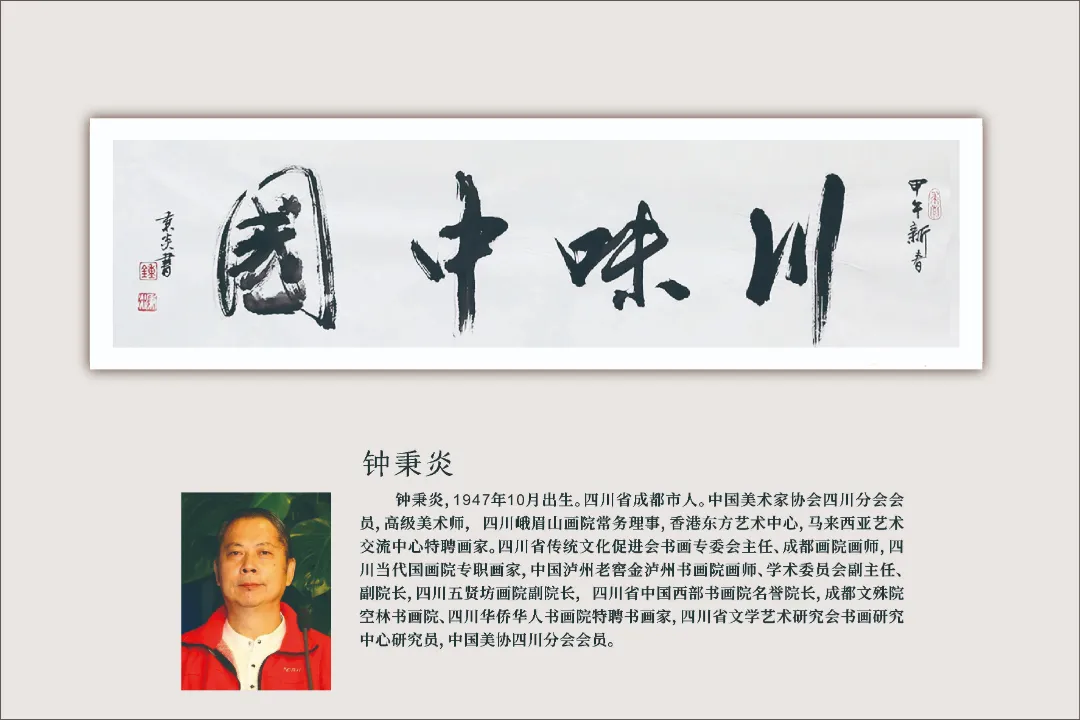 甲午新春
川味中國
秉炎書
钟秉炎
钟秉炎,1947年10月出生。四川省成都市人。中国美术家协会四川分会会
员,高级美术师, 四川峨眉山画院常务理事,香港东方艺术中心,马来西亚艺术
交流中心特聘画家。四川省传统文化促进会书画专委会主任、成都画院画师,四
川当代国画院专职画家,中国泸州老窖金泸州书画院画师、学术委员会副主任、
副院长,四川五贤坊画院副院长, 四川省中国西部书画院名誉院长,成都文殊院
空林书画院、四川华侨华人书画院特聘书画家,四川省文学艺术研究会书画研究
中心研究员,中国美协四川分会会员。